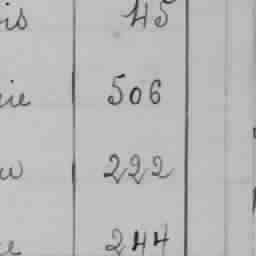 is 45
ie 506
w 222
e 244